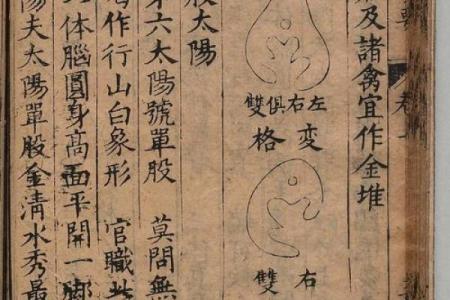 及諸禽宜作金堆
左右俱雙
變格
右雙
股太陽
第六太陽號單股 莫問無
作行山白象形 官職
体腦圓身高面平開一脚
陽夫太陽單股金清水秀最